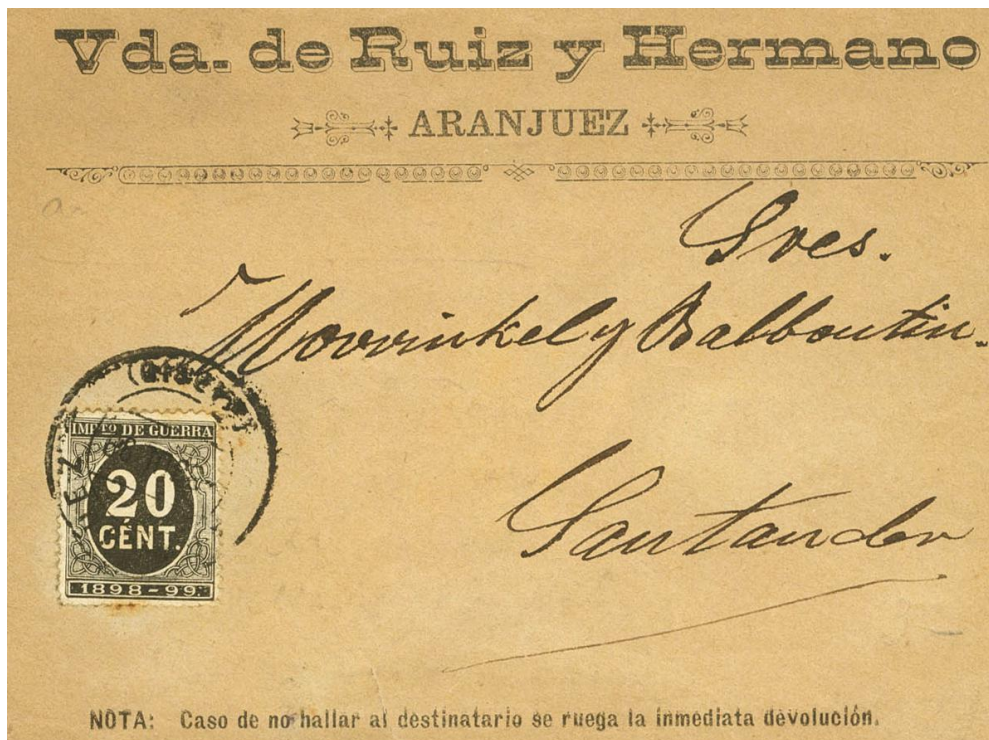 Vda. de Ruiz y Hermano
ARANJUEZ
Sres.
Movrinkel y Balboutin.
IMPTO DE GUERRA
20
CÉNT.
1898-99.
Santander
NOTA: Caso de no hallar al destinatario se ruega la inmediata devolución.